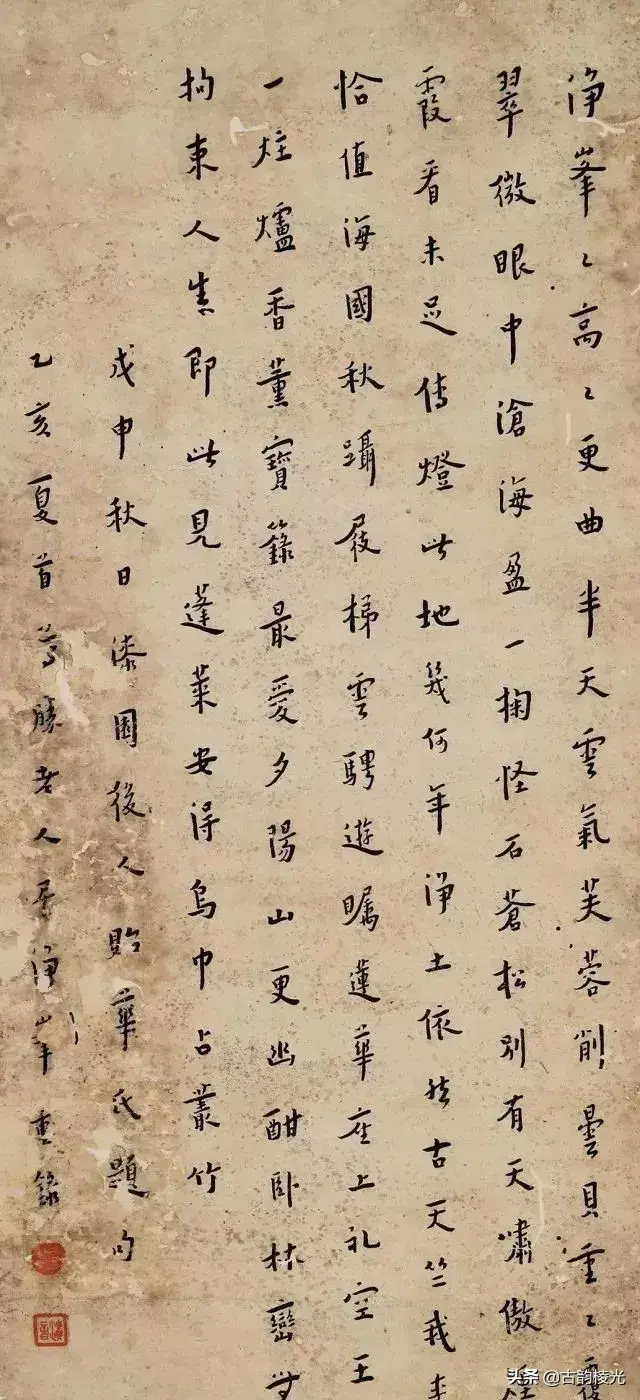 淨峯〻高〻更曲半天雲氣芙蓉削曇貝重〻覆
翠微眼中滄海盈一掬怪石蒼松別有天嘯傲煙
霞看未足傳燈此地幾何年淨土依然古天竺我來
恰值海國秋躡屐梯雲騁遊矚蓮華座上礼空王
一炷爐香薰寶籙最愛夕陽山更幽酣臥林巒
拘束人生即此見蓬萊安得烏巾占叢竹
戊申秋日漆園後人貽華氏題句
乙亥夏首尊勝老人居淨峯重錄
头条 @古韵棱光